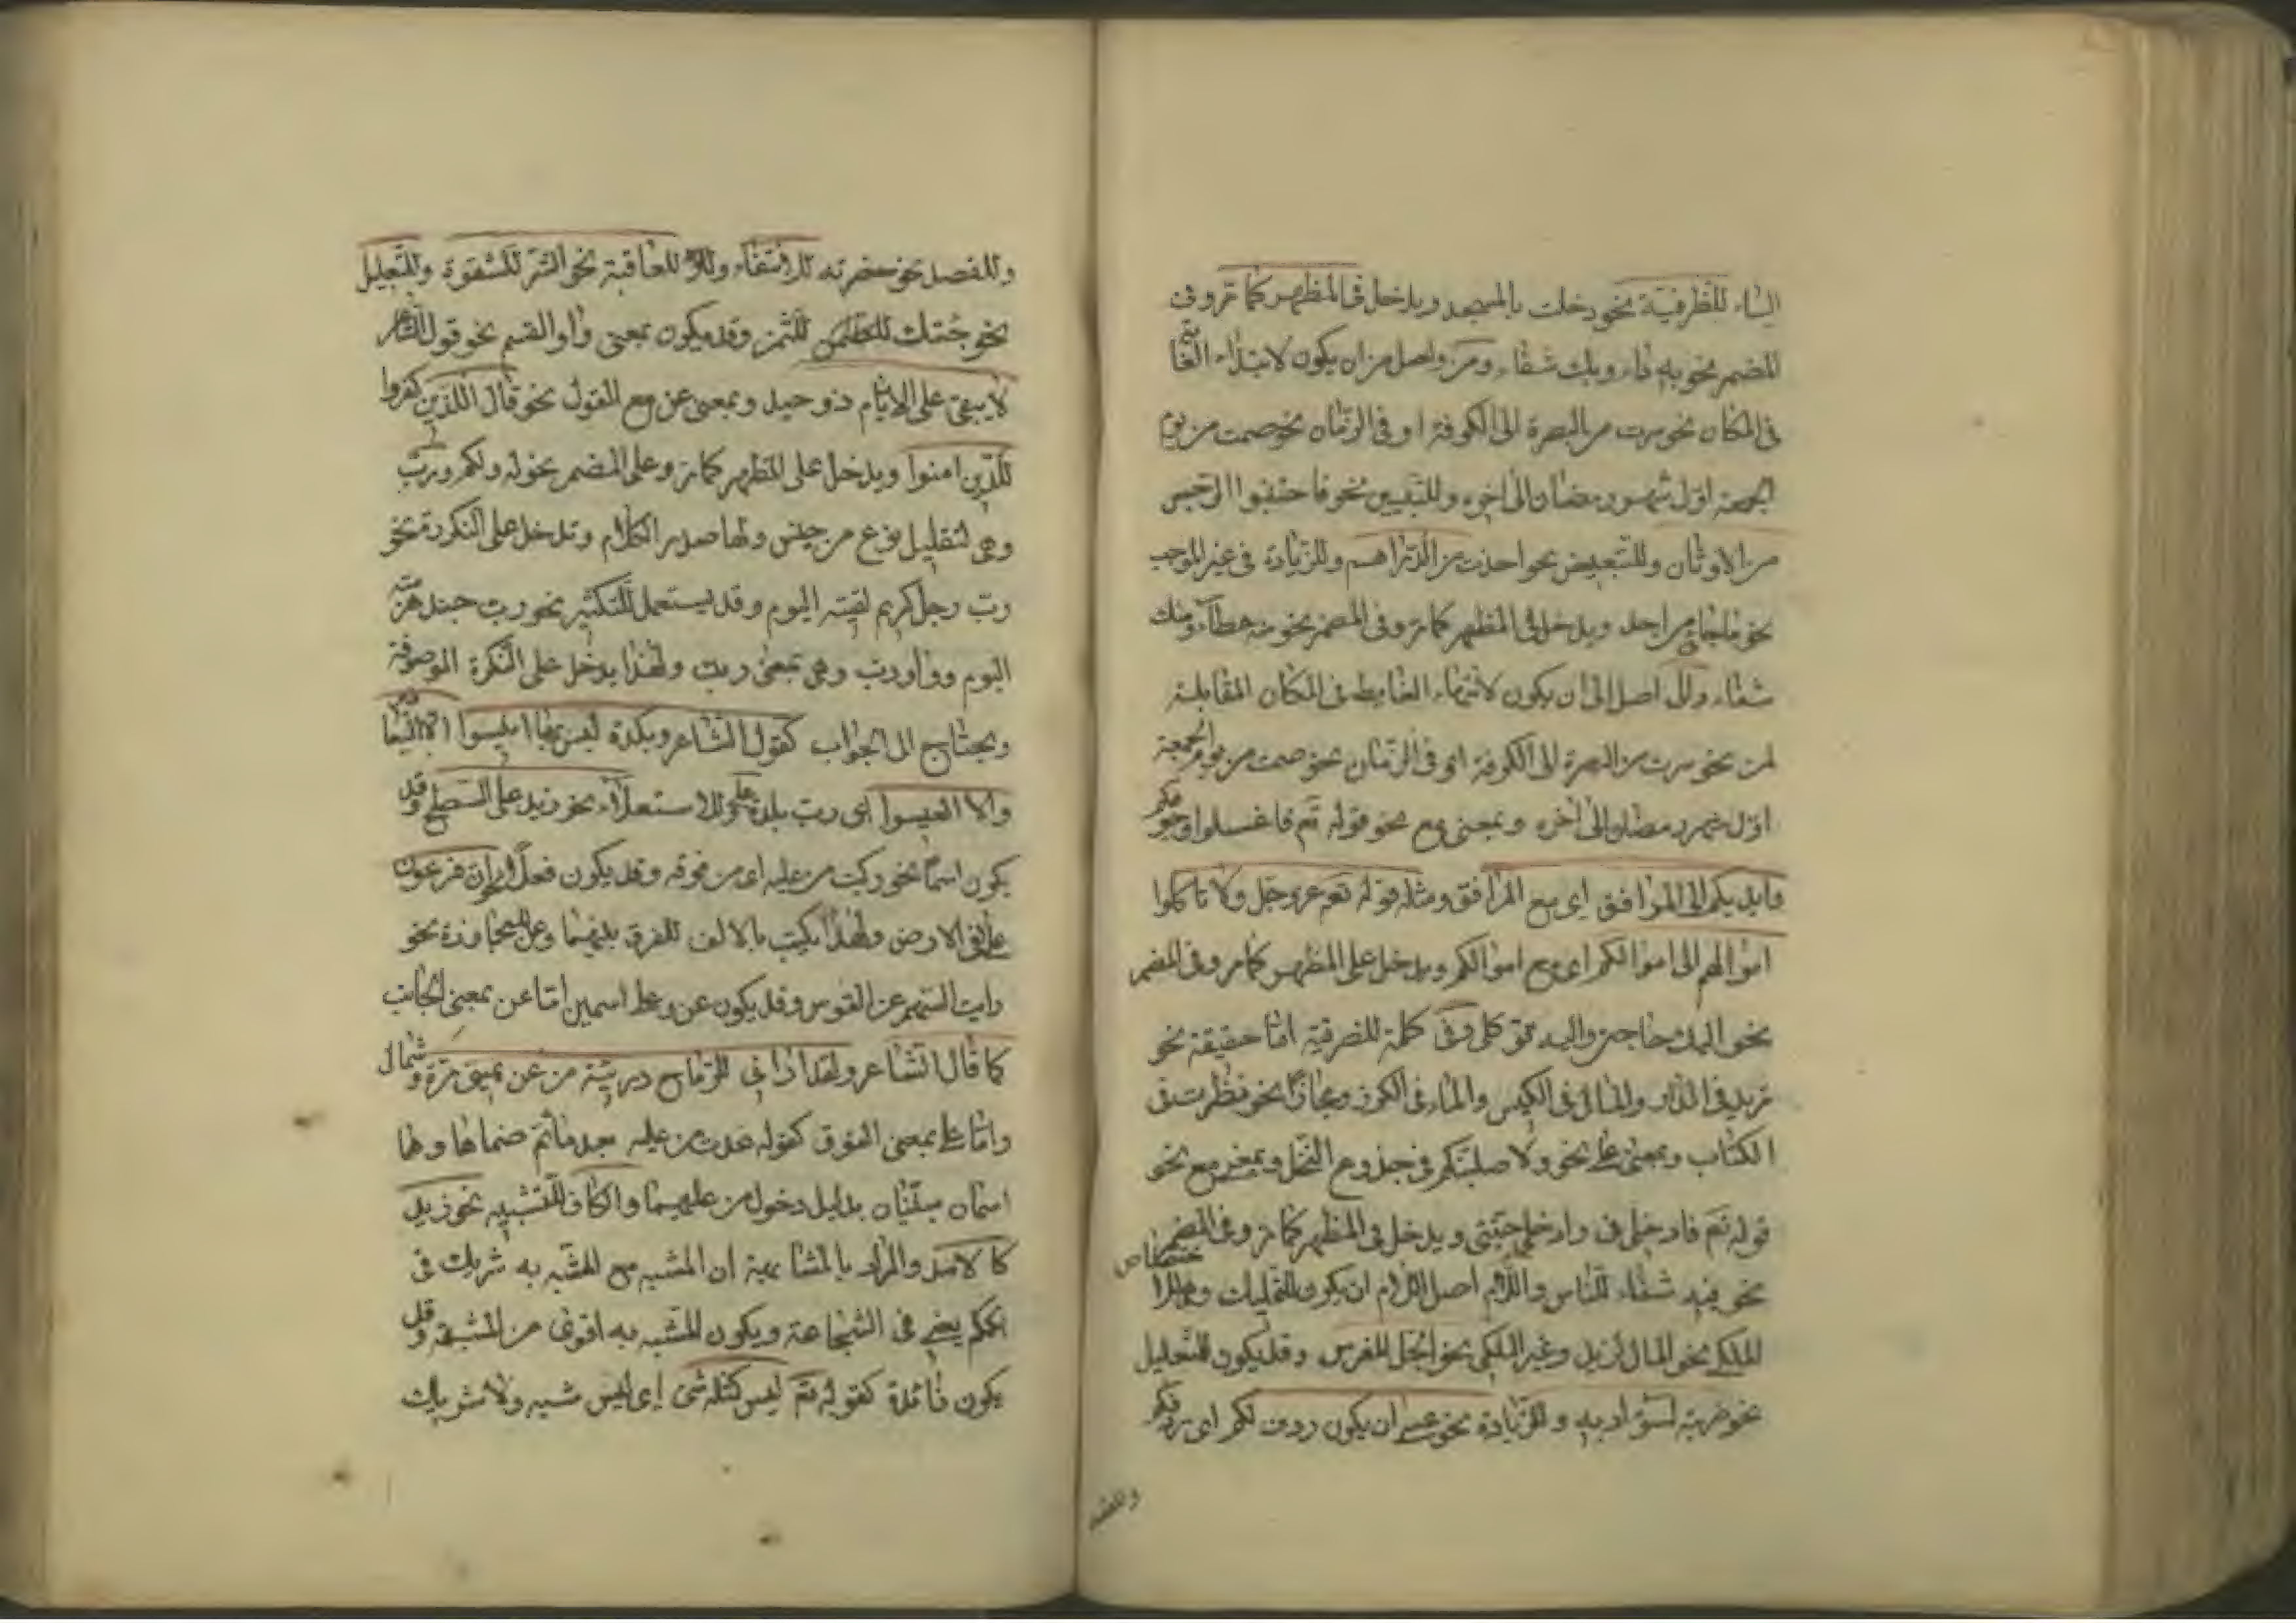 الباء للظرفية نحو دخلت بالمسجد ويدخل فى المظهر كما مر وفى
المضمر نحو به داء وبك شفاء ومن واصل من ان يكون لابتداء الغاية
فى المكان نحو سرت من البصرة الى الكوفة او فى الزمان نحو صمت من يوم
الجمعة اول شهر رمضان الى اخره وللتبيين نحو فاجتنبوا الرجس
من الاوثان وللتبعيض نحو اخذت من الدراهم وللزيادة فى غير الموجب
نحو ما جاءنى من احد ويدخل فى المظهر كما مر وفى المضمر نحو منه عطاء ومنك
شفاء والى اصل الى ان يكون لانتهاء الغاية فى المكان المقابلة
لمن نحو سرت من البصرة الى الكوفة او فى الزمان نحو صمت من يوم الجمعة
اول شهر رمضان الى اخره وبمعنى مع نحو قوله تع فاغسلوا وجوهكم
وايديكم الى المرافق اى مع المرافق ومثله قوله تع عز وجل ولا تاكلوا
اموالهم الى اموالكم اى مع اموالكم ويدخل على المظهر كما مر وفى المضمر
نحو اليك حاجتى واليه وفى كلمة للظرفية اما حقيقة نحو
زيد فى الدار والمال فى الكيس والماء فى الكوز ومجازا نحو نظرت فى
الكتاب وبمعنى على نحو ولاصلبنكم فى جذوع النخل وبمعنى مع نحو
قوله تع فادخلى فى وادخلى جنتى ويدخل فى المظهر كما مر وفى المضمر
نحو فيه شفاء للناس واللام اصل اللام ان يكون للتمليك والاختصاص
الملكى نحو المال لزيد وغير الملكى نحو الجل للفرس وقد يكون للتعليل
نحو ضربته لسوء ادبه وللزيادة نحو عسى ان يكون ردف لكم اى ردفكم
وللقصد
وللقصد نحو للانتفاء وللعاقبة نحو الشر للشقوة وللتعليل
نحو جئتك للثمن وقد يكون بمعنى واو القسم نحو قول الشاعر
لا يبقى على الايام ذو حيد وبمعنى عن مع القول نحو قال الذين كفروا
للذين امنوا ويدخل على المظهر كما مر وعلى المضمر نحو له ولكم ورب
وهى لتقليل نوع من جنس ولها صدر الكلام وتدخل على النكرة نحو
رب رجل كريم لقيته اليوم وقد يستعمل للتكثير نحو رب جند هزمته
اليوم وواو رب وهى بمعنى رب ولهذا يدخل على النكرة الموصوفة
ويحتاج الى الجواب كقول الشاعر وبلدة ليس بها انيس الا اليعافير
والا العيس اى رب بلدة على وللاستعلاء نحو زيد على السطح وقد
يكون اسما نحو ركبت من عليه اى من فوقه وقد يكون فعلا نحو ان فرعون
علا فى الارض ولهذا يكتب بالالف للفرق بينهما وعن للمجاوزة نحو
رايت السهم عن القوس وقد يكون عن وعلى اسمين اما عن بمعنى الجانب
كما قال الشاعر ولقد ارانى للرماح دريئة من عن يمينى مرة وشمال
واما على بمعنى الفوق كقوله غدت من عليه بعد ما تم ضماها وهما
اسمان مبنيان بدليل دخول من عليهما والكاف للتشبيه نحو زيد
كالاسد والمراد بالمشابهة ان المشبه مع المشبه به شريك فى
حكم يعنى فى الشجاعة ويكون المشبه به اقوى من المشبه وقد
يكون زائدة كقوله تع ليس كمثله شى اى ليس شبيه ولا شريك